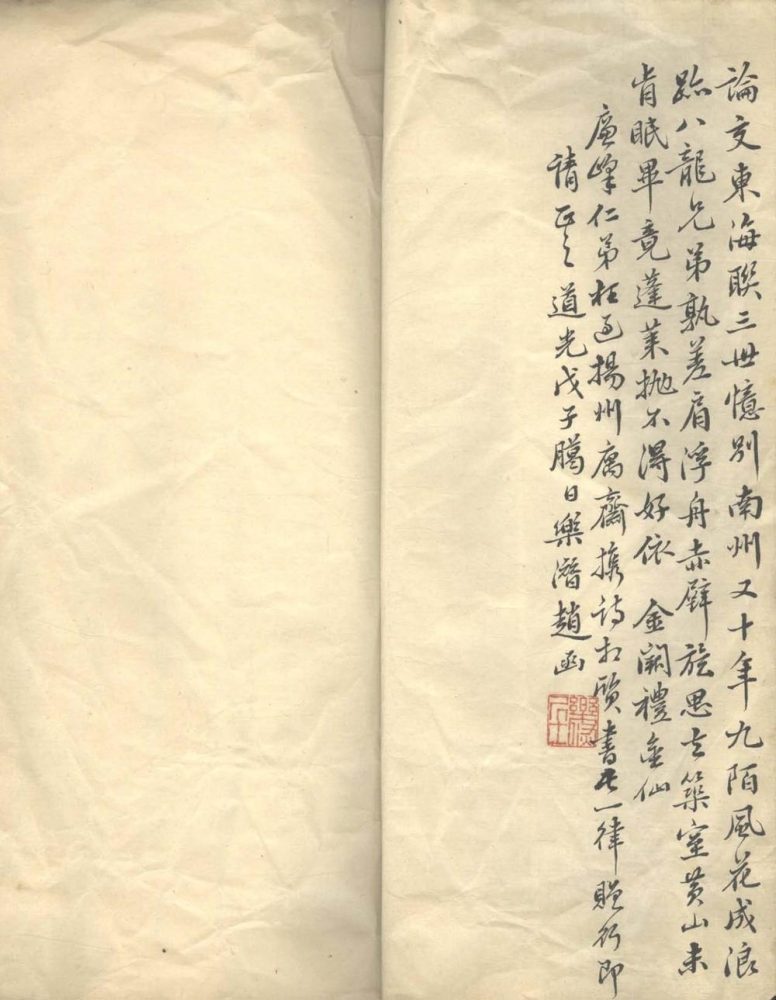 論交東海聯三世憶別南州又十年九陌風花成浪
跡八龍兄弟孰差肩浮舟赤壁旋思去築室黃山未
肯眠畢竟蓬萊拋不得好依
金闕禮金仙
廉峰仁弟枉過揚州寓齋攜詩相質書此一律贈行即
請正之 道光戊子臈日樂潛趙函